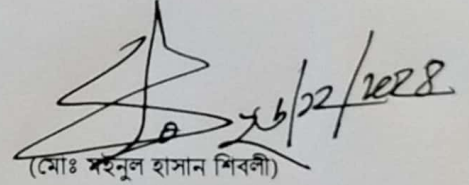 ২৬/১২/২০২৪
(মোঃ মইনুল হাসান শিবলী)